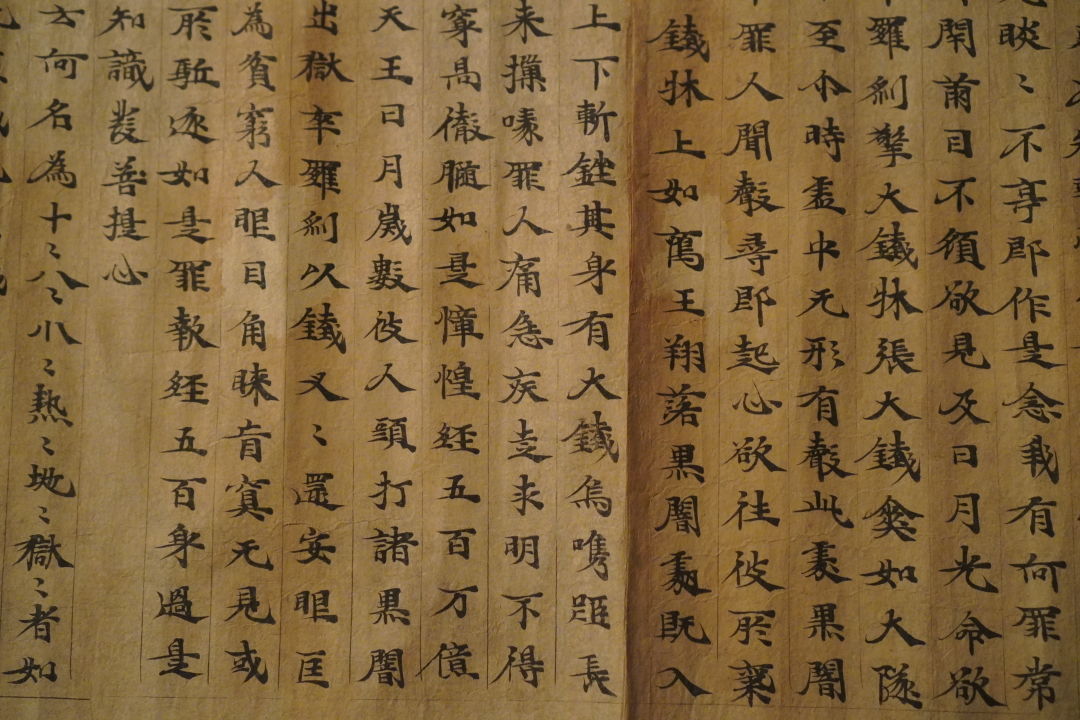 睒々不亭即作是念我有何罪常
閇前目不須欲見及日月光命欲
羅剎擎大鐵牀張大鐵傘如大隊
至小時盂中无形有聲此處黒闇
罪人聞聲尋即起心欲往彼所棄
鐵牀上如萬王翔落黒闇處既入
上下斬銼其身有大鐵烏嘴距長
来攥啄罪人痛急疾走求明不得
穿骨徹髓如是慞惶経五百万億
天王日月歲數彼人頭打諸黒闇
出獄卒羅剎以鐵叉々還安眼匡
為貧窮人眼目角睞盲冥无見或
所駈逐如是罪報経五百身過是
知識發菩提心
云何名為十々八々小々熱々地々獄々者如